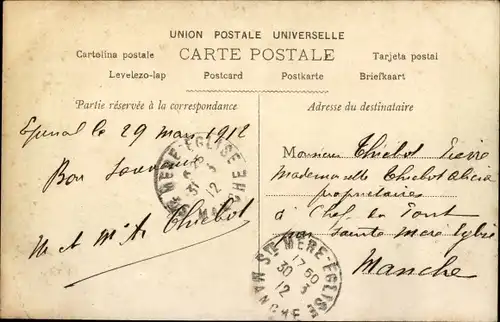 UNION POSTALE UNIVERSELLE
CARTE POSTALE
Cartolina postale
Tarjeta postal
Levelezo-lap
Postcard
Postkarte
Briefkaart
Partie réservée à la correspondance
Adresse du destinataire
Epinal le 29 mars 1912
Bon Souvenir
M et Me A Thiebot
Monsieur Thiébot
Mademoiselle Thiebot
propriétaires
à Chef du Pont
par Sainte mere Eglise
Manche
STE MERE-EGLISE
31 3
12
MANCHE
STE MERE-EGLISE
17 50
30 3
12
MANCHE